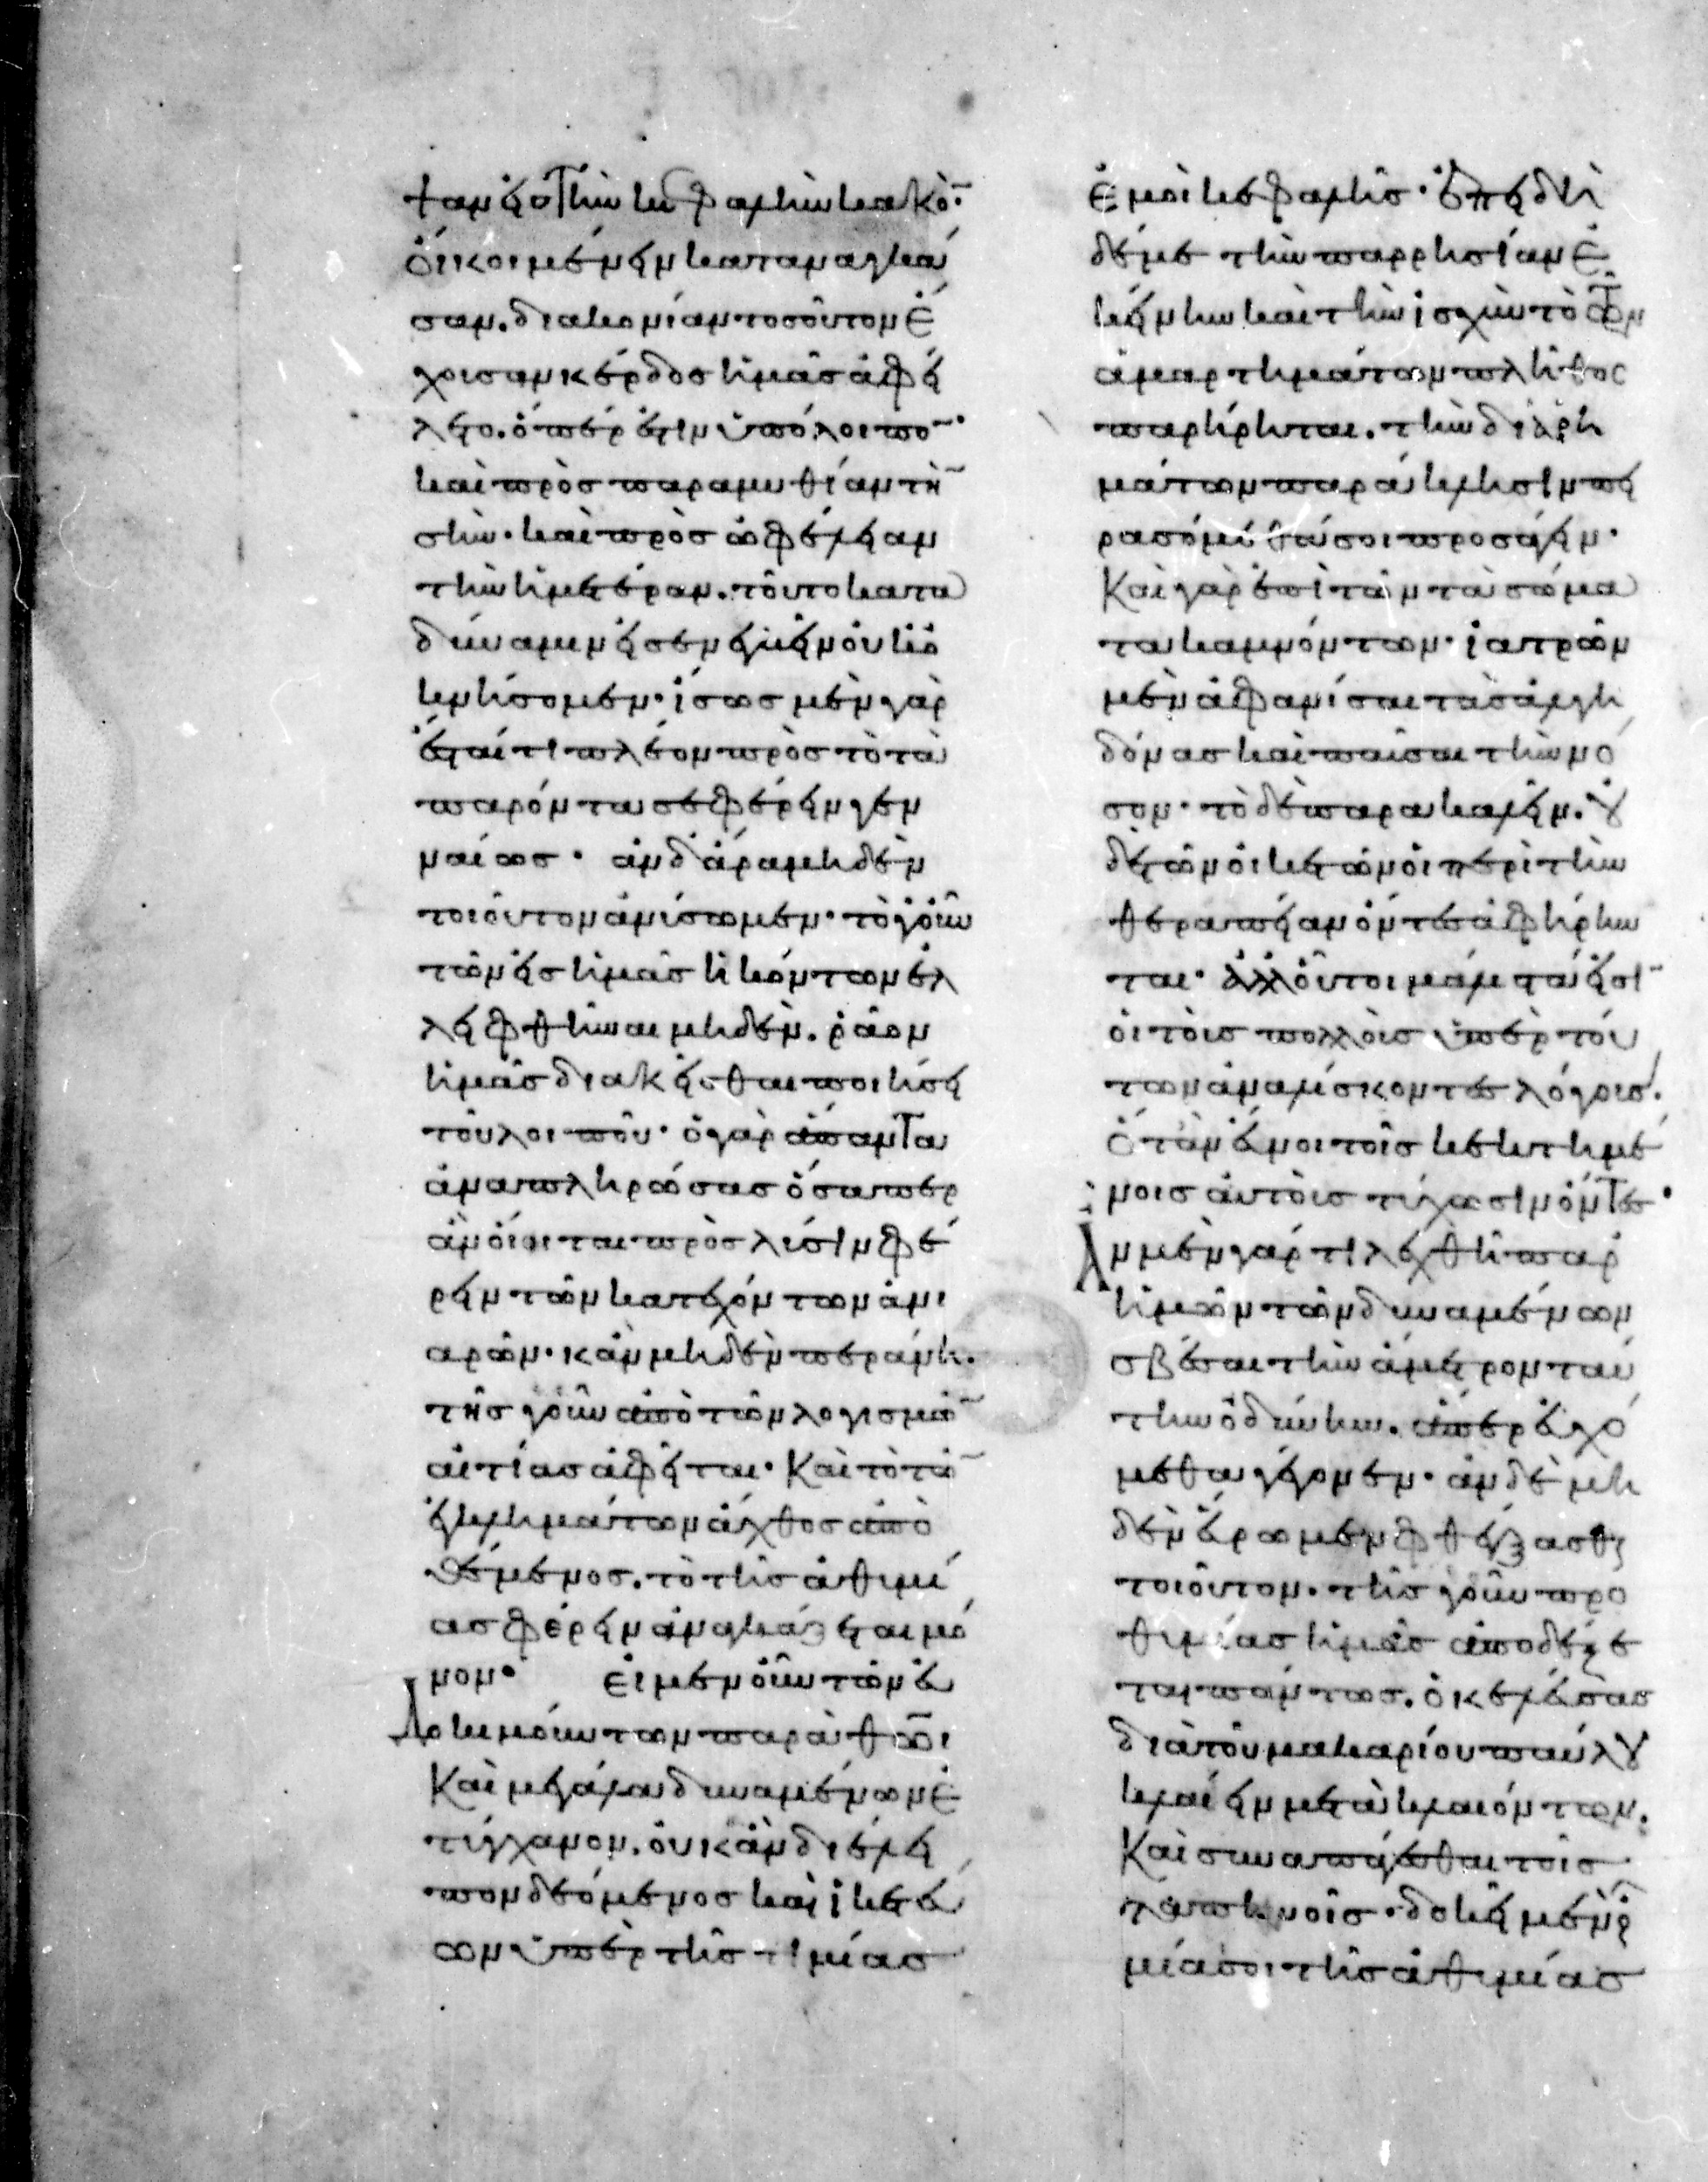 ψαν εἰς τὴν κεφαλὴν κακὸ̅·
οἴκοι μένειν καταναγκά
σαν. διακονίαν τοσοῦτον ἐ
χοισαν κέρδος ἡμᾶς ἀφεί
λετο. ὅπερ ἐστὶν ὑπόλοιπο̅·
καὶ πρὸς παραμυθίαν τὴ̅
σὴν· καὶ πρὸς ὠφέλειαν
τὴν ἡμετέραν. τοῦτο κατὰ
δύναμιν εἰσενεγκεῖν οὐκ ὀ
κνήσομεν· ἴσως μὲν γὰρ
ἔσται τὶ πλέον πρὸς τὸ τὰ
παρόντα σε φέρειν γεν
ναίως· ἂν δ' ἄρα μηδὲν
τοιοῦτον ἀνύσωμεν· τὸ γοῦν
τῶν εἰς ἡμᾶς ἡκόντων ἐλ
λειφθῆναι μηδὲν. ῥᾶον
ἡμᾶς διακεῖσθαι ποιήσει
τοῦ λοιποῦ· ὁ γὰρ ἅπαντα
ἀναπληρώσας ὅσαπερ
ἂν οἴηται πρὸς λύσιν φέ
ρειν τῶν κατεχόντων ἀνι
αρῶν· κἂν μηδὲν περάνη.
τῆς γοῦν ἀπὸ τῶν λογισμῶ̅
αἰτίας ἀφεῖται· Καὶ τὸ τῶ̅
ἐγκλημάτων ἄχθος ἀπο
θέμενος. τὸ τῆς ἀθυμί
ας φέρειν ἀναγκάζεται μό
νον· εἰ μὲν οὖν τῶν εὐ
Δοκιμούντων παρὰ θῶ̅ι
Καὶ μεγάλα δυναμένων ἐ
τύγχανον. οὐκ ἂν διέλει
πον δεόμενος καὶ ἱκετεύ
ων ὑπὲρ τῆς τιμίας
ἐμοὶ κεφαλῆς· ἐπειδὴ
δέ με τὴν παρρησίαν ἐ
κείνην καὶ τὴν ἰσχὺν τὸ τῶν
ἁμαρτημάτων πλῆθος
παρήρηται. τὴν διὰ ῥη
μάτων παράκλησιν πει
ρασόμεθά σοι προσάγειν·
Καὶ γὰρ ἐπὶ τῶν τὰ σώμα
τα καμνόντων· ἰατρῶν
μὲν ἀφανίσαι τὰς ἀλγη
δόνας καὶ παῦσαι τὴν νό
σον· τὸ δὲ παρακαλεῖν. οὐ
δὲ τῶν οἰκετῶν οἱ περὶ τὴν
θεραπείαν ὄντες ἀφήρην
ται· ἀλλ' οὗτοι μάλιστά εἰσι̅
οἱ τοῖς πολλοῖς ὑπὲρ τού
των ἀναλίσκοντες λόγοις.
ὅταν εὖνοι τοῖς κεκτημέ
νοις αὐτοῖς τύχωσιν ὄντες·
Ἂν μὲν γάρ τι λεχθῆ παρ'
ἡμῶν τῶν δυναμένων
σβέσαι τὴν ἄμετρον ταύ
την ὀδύνην. ἅπερ εὐχό
μεθα γέγονεν· ἂν δὲ μη
δὲν εὕρωμεν φθέγξασθαι
τοιοῦτον. τῆς γοῦν προ
θυμίας ἡμᾶς ἀποδέξε
ται πάντως. ὁ κελεύσας
διὰ τοῦ μακαρίου παύλου
κλαίειν μετὰ κλαιόντων.
Καὶ συναπάγεσθαι τοῖς
ταπεινοῖς· δοκεῖ μὲν οὖν
μία σοι τῆς ἀθυμίας